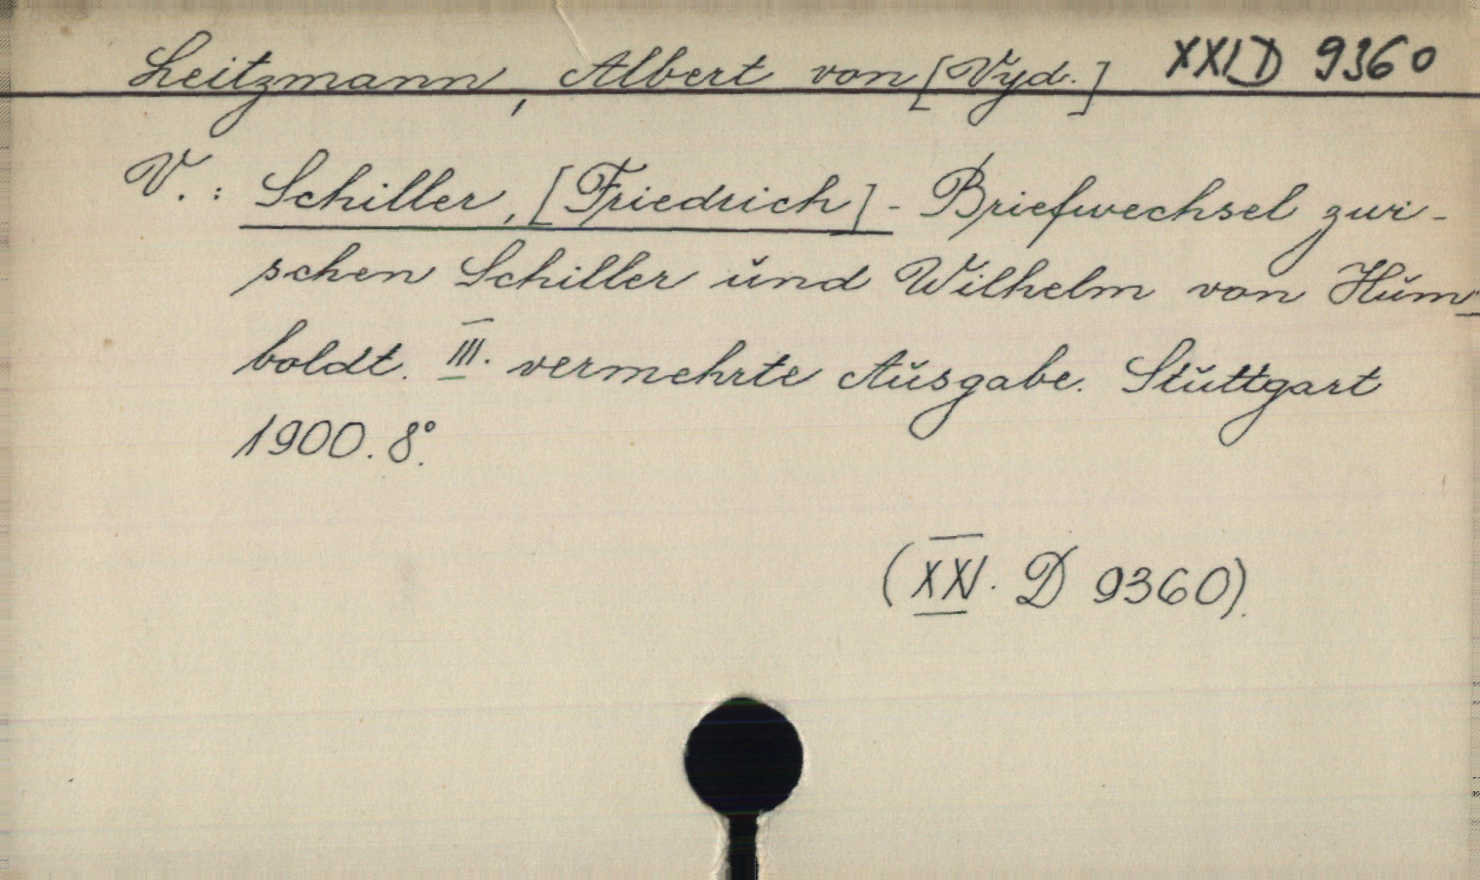 Leitzmann, Albert von [Vyd.] XXI D 9360
V.: Schiller, [Friedrich] - Briefwechsel zwi-
schen Schiller und Wilhelm von Hum-
boldt. III. vermehrte Ausgabe. Stuttgart
1900. 8°.
(XXI. D 9360).